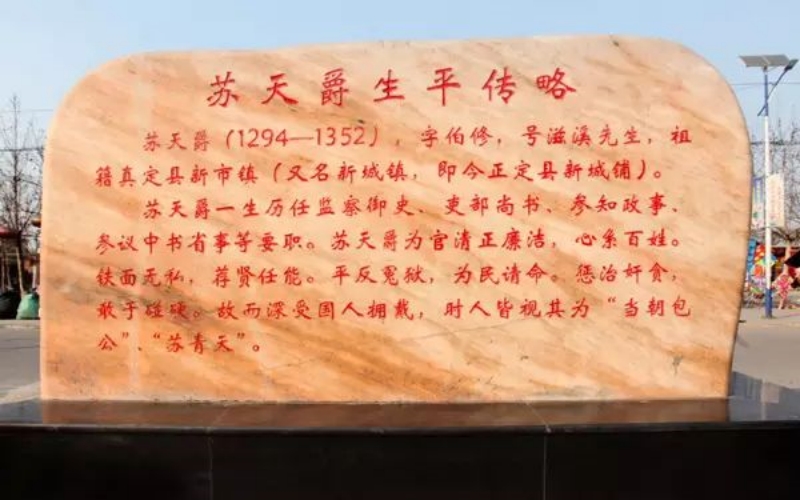 苏天爵生平传略
苏天爵（1294—1352），字伯修，号滋溪先生，祖
籍真定县新市镇（又名新城镇，即今正定县新城铺）。
苏天爵一生历任监察御史、吏部尚书、参知政事、
参议中书省事等要职。苏天爵为官清正廉洁，心系百姓。
铁面无私，荐贤任能。平反冤狱，为民请命。惩治奸贪，
敢于碰硬。故而深受国人拥戴，时人皆视其为“当朝包
公”、“苏青天”。